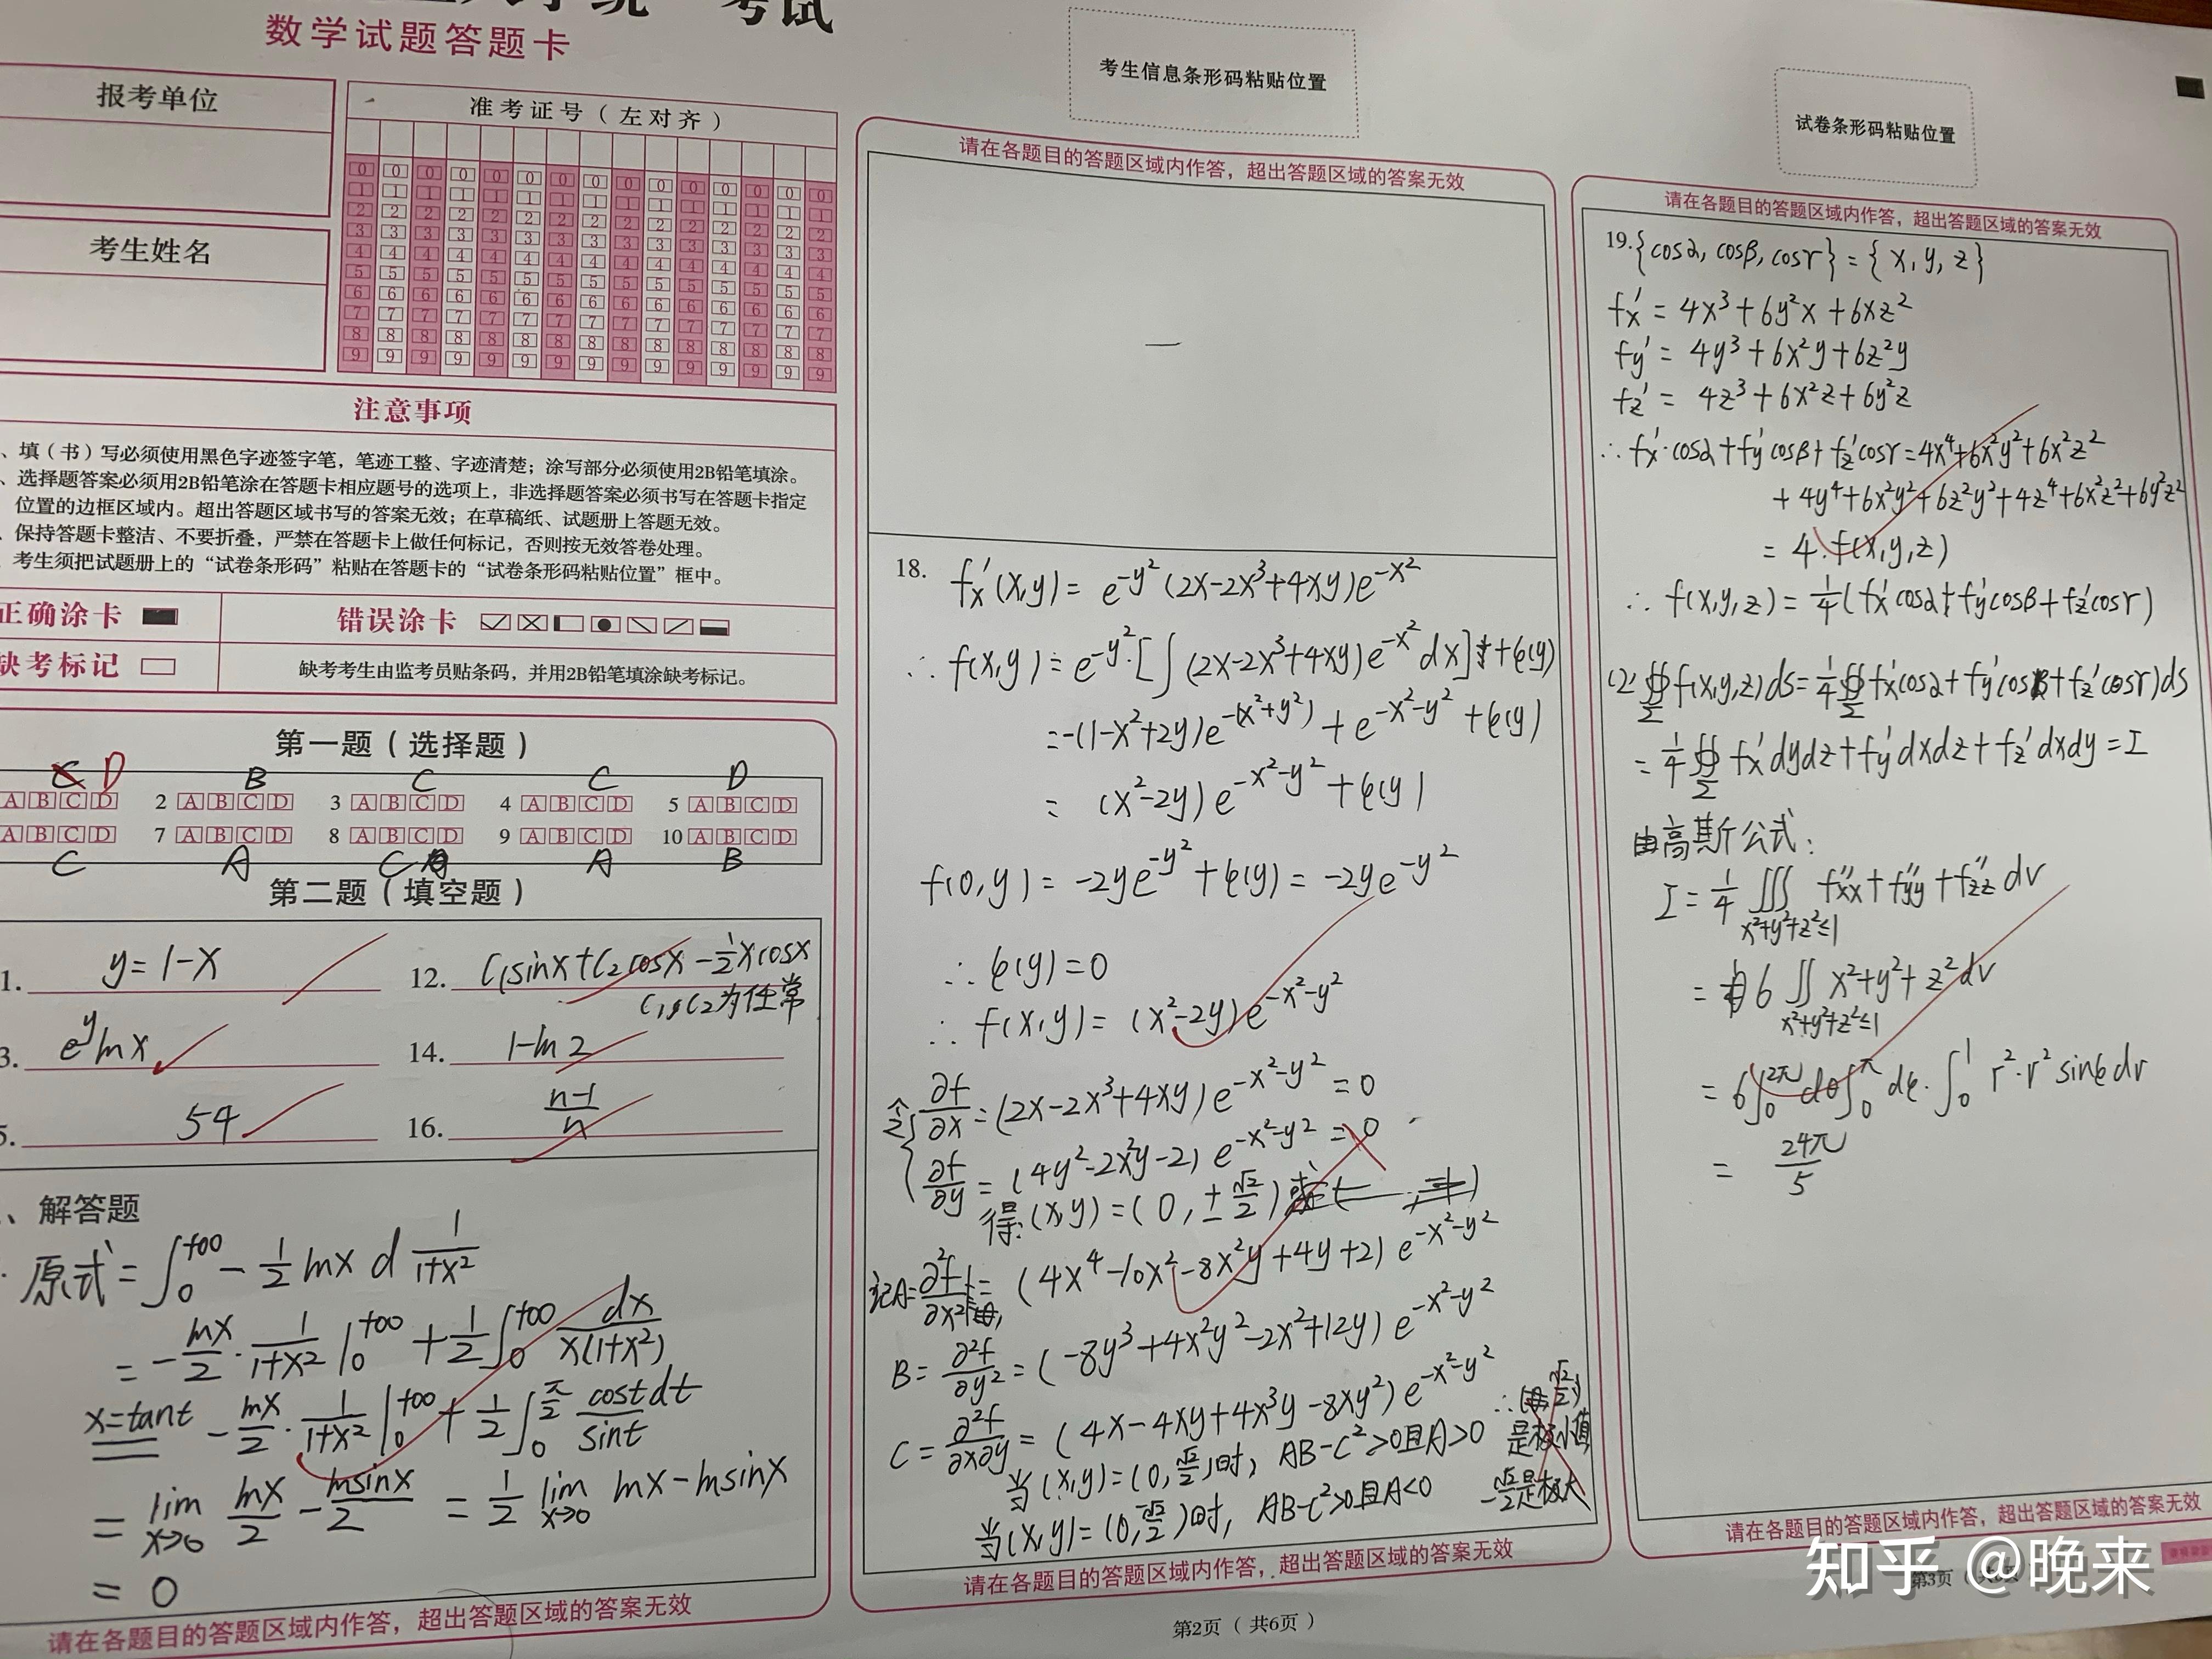 考试
数学试题答题卡
报考单位
准考证号（左对齐）
考生姓名
注意事项
、填（书）写必须使用黑色字迹签字笔，笔迹工整、字迹清楚；涂写部分必须使用2B铅笔填涂。
、选择题答案必须用2B铅笔涂在答题卡相应题号的选项上，非选择题答案必须书写在答题卡指定
位置的边框区域内。超出答题区域书写的答案无效；在草稿纸、试题册上答题无效。
、保持答题卡整洁、不要折叠，严禁在答题卡上做任何标记，否则按无效答卷处理。
考生须把试题册上的“试卷条形码”粘贴在答题卡的“试卷条形码粘贴位置”框中。
正确涂卡 错误涂卡
缺考标记 缺考考生由监考员贴条码，并用2B铅笔填涂缺考标记。
第一题（选择题）
D B C C D
A B C D 2 A B C D 3 A B C D 4 A B C D 5 A B C D
A B C D 7 A B C D 8 A B C D 9 A B C D 10 A B C D
C A C A B
第二题（填空题）
1. y=1-x 12. C₁sinx+C₂cosx-½xcosx
C₁,C₂为任常
3. e^y lnx 14. 1-ln2
5. 54 16. (n-1)/n
、解答题
原式=∫₀^{+∞} -½lnx d 1/(1+x²)
= -lnx/2 · 1/(1+x²) |₀^{+∞} + ½∫₀^{+∞} dx/(x(1+x²))
x=tant -lnx/2 · 1/(1+x²) |₀^{+∞} + ½∫₀^{π/2} costdt/sint
= lim_{x→0} lnx/2 - lnsinx/2 = ½ lim_{x→0} lnx-lnsinx
= 0
请在各题目的答题区域内作答，超出答题区域的答案无效
考生信息条形码粘贴位置
请在各题目的答题区域内作答，超出答题区域的答案无效
18. fx'(x,y)= e^{-y²}(2x-2x³+4xy)e^{-x²}
∴ f(x,y)= e^{-y²}·[∫(2x-2x³+4xy)e^{-x²}dx]+φ(y)
=-(1-x²+2y)e^{-(x²+y²)}+e^{-x²-y²}+φ(y)
= (x²-2y)e^{-x²-y²}+φ(y)
f(0,y)= -2ye^{-y²}+φ(y)= -2ye^{-y²}
∴ φ(y)=0
∴ f(x,y)= (x²-2y)e^{-x²-y²}
令{ ∂f/∂x=(2x-2x³+4xy)e^{-x²-y²}=0
∂f/∂y=(4y²-2x²y-2)e^{-x²-y²}=0
得:(x,y)=(0,±√2/2)
记A=∂²f/∂x²= (4x⁴-10x²-8x²y+4y+2)e^{-x²-y²}
B= ∂²f/∂y²= (-8y³+4x²y²-2x²+12y)e^{-x²-y²}
C= ∂²f/∂x∂y= (4x-4xy+4x³y-8xy²)e^{-x²-y²}
当(x,y)=(0,√2/2)时, AB-C²>0且A>0
∴(0,√2/2)
是极小值
当(x,y)=(0,-√2/2)时, AB-C²>0且A<0
-√2/2是极大
请在各题目的答题区域内作答，超出答题区域的答案无效
第2页（共6页）
试卷条形码粘贴位置
请在各题目的答题区域内作答，超出答题区域的答案无效
19.{cosα, cosβ, cosγ}={x,y,z}
fx'= 4x³+6y²x+6xz²
fy'= 4y³+6x²y+6z²y
fz'= 4z³+6x²z+6y²z
∴ fx'·cosα+fy'cosβ+fz'cosγ=4x⁴+6x²y²+6x²z²
+4y⁴+6x²y²+6z²y²+4z⁴+6x²z²+6y²z²
= 4·f(x,y,z)
∴ f(x,y,z)=¼(fx'cosα+fy'cosβ+fz'cosγ)
(2) ∯_Σ f(x,y,z)ds=¼∯_Σ fx'cosα+fy'cosβ+fz'cosγ)ds
= ¼∯_Σ fx'dydz+fy'dxdz+fz'dxdy=I
由高斯公式:
I=¼∭_{x²+y²+z²≤1} fxx''+fyy''+fzz'' dv
= 6∬_{x²+y²+z²≤1} x²+y²+z² dv
= 6∫₀^{2π}dθ∫₀^π dφ·∫₀^1 r²·r²sinφdr
= 24π/5
请在各题目的答题区域内作答，超出答题区域的答案无效
第3页
知乎 @晚来